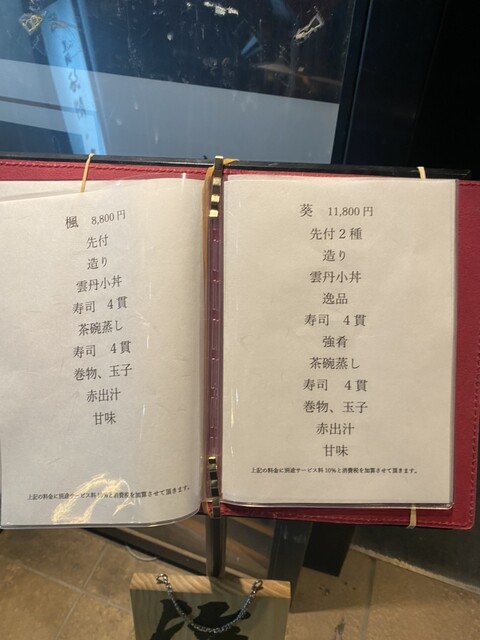 楓 8,800円
先付
造り
雲丹小丼
寿司 4貫
茶碗蒸し
寿司 4貫
巻物、玉子
赤出汁
甘味
上記の料金に別途サービス料10%と消費税を加算させて頂きます。
葵 11,800円
先付2種
造り
雲丹小丼
逸品
寿司 4貫
強肴
茶碗蒸し
寿司 4貫
巻物、玉子
赤出汁
甘味
上記の料金に別途サービス料10%と消費税を加算させて頂きます。